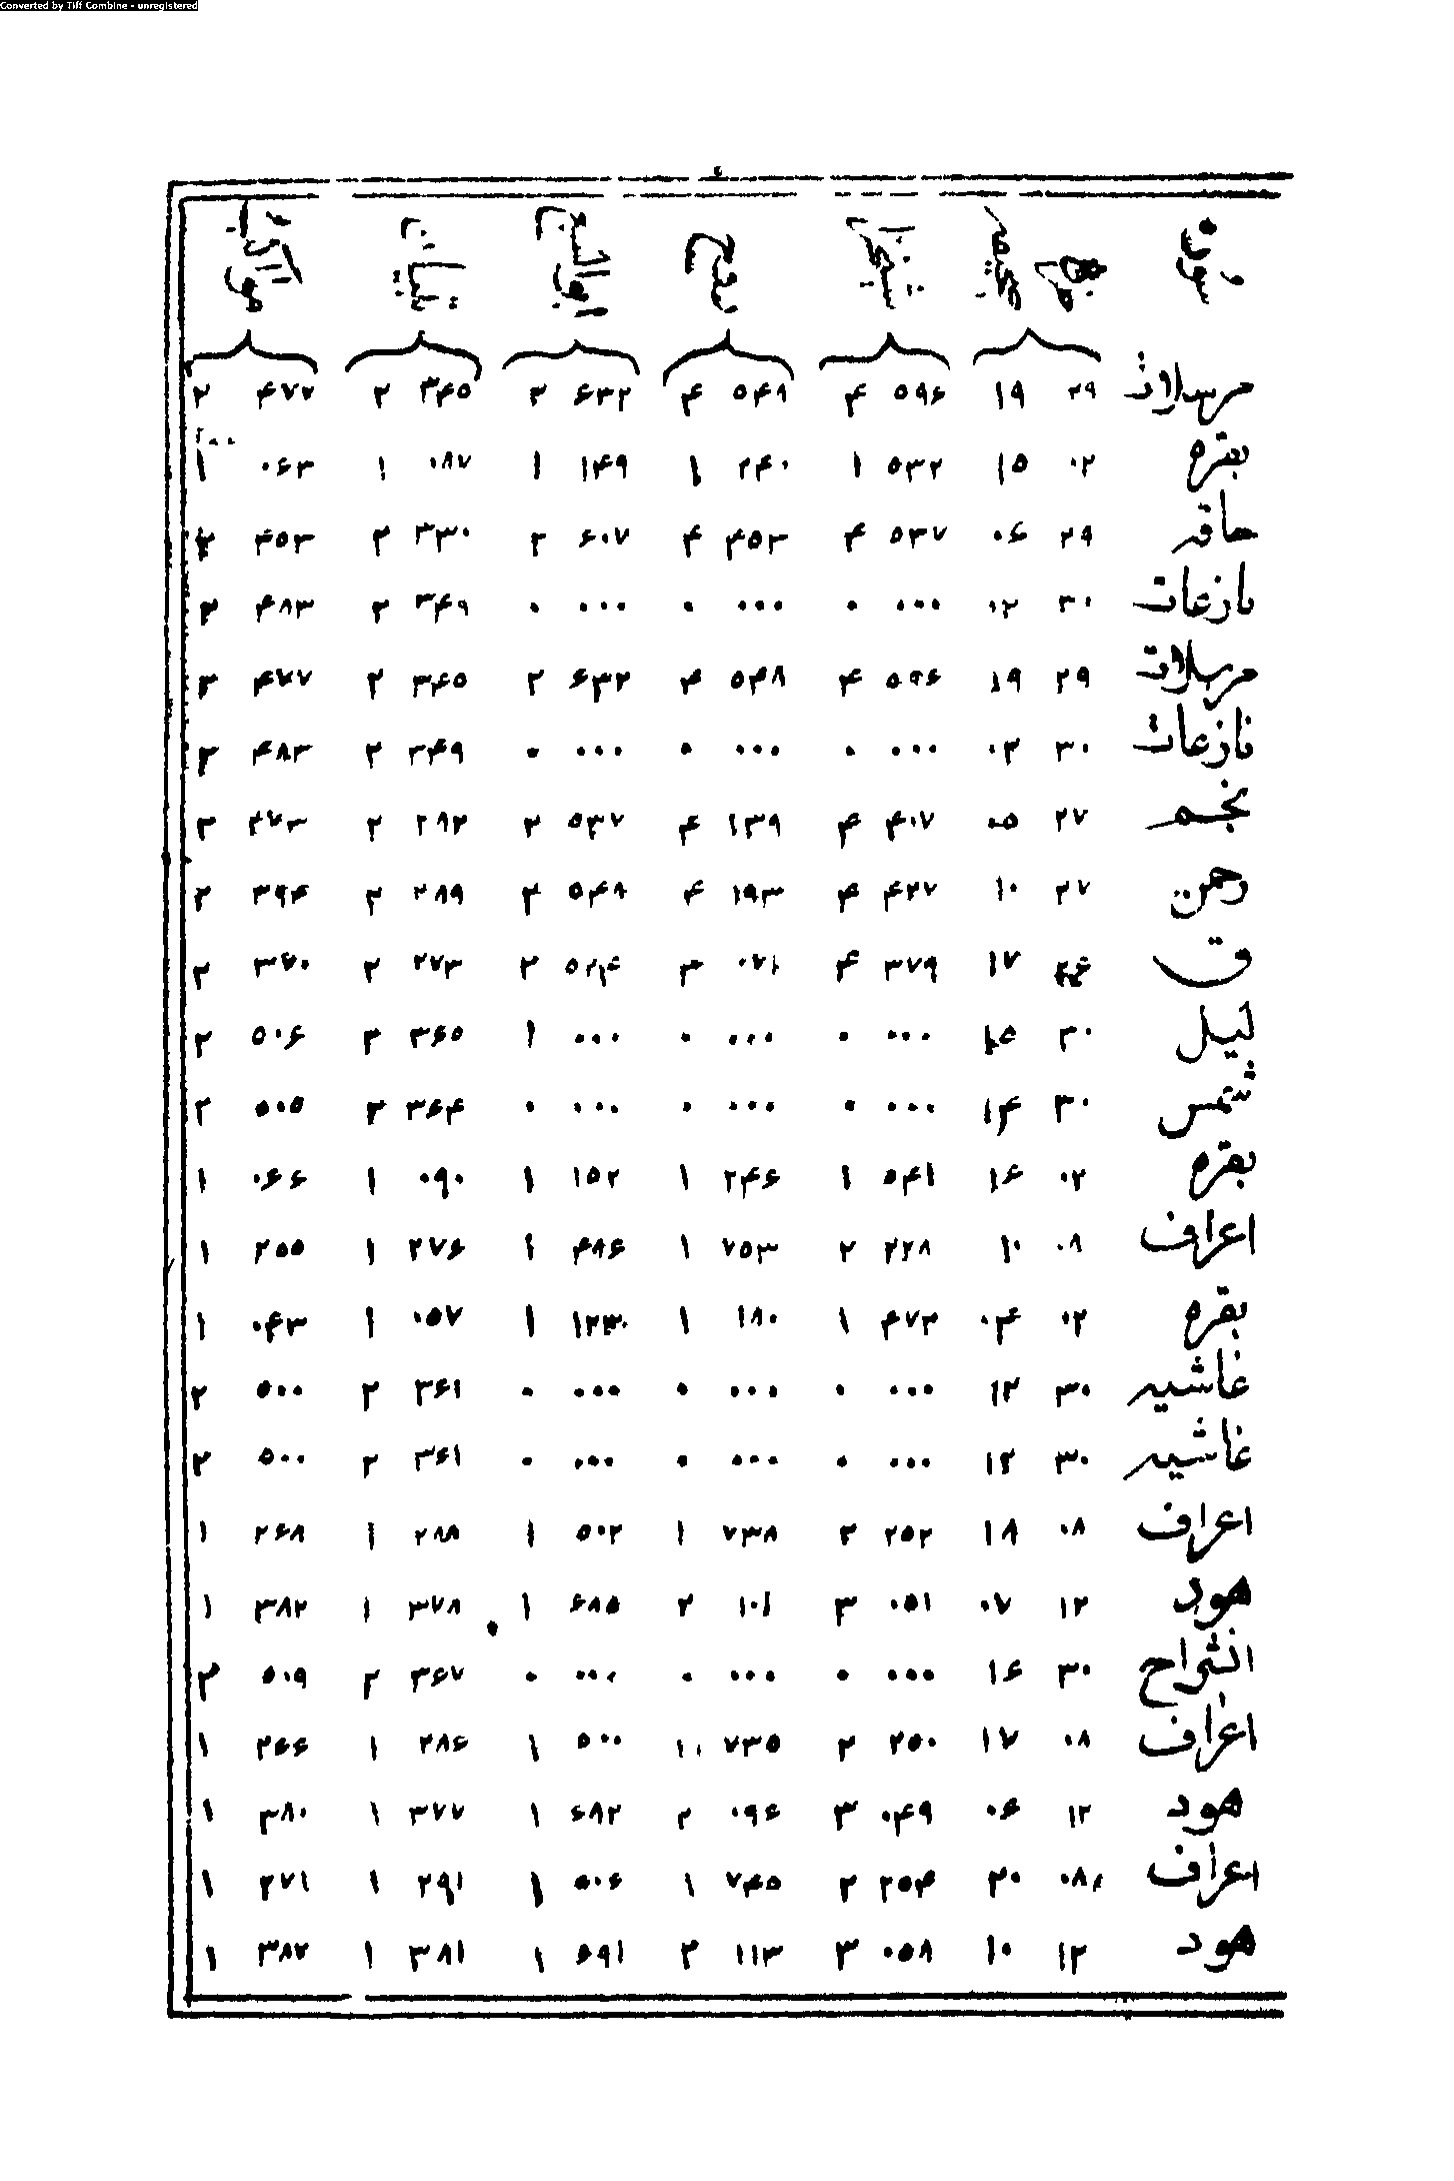 Converted by Tiff Combine - unregistered
سوره روح
مرسلات ۲۹ ۱۹ ۵۹۶ ۴ ۵۴۹ ۴ ۶۳۲ ۲ ۳۴۵ ۲ ۴۷۷ ۲
بقره ۰۲ ۱۵ ۵۳۲ ۱ ۲۴۰ ۱ ۱۴۹ ۱ ۰۸۷ ۱ ۰۶۳ ۱
حاقه ۲۹ ۰۶ ۵۳۷ ۴ ۴۵۳ ۴ ۶۰۷ ۲ ۳۳۰ ۲ ۴۵۳ ۲
نازعات ۳۰ ۰۲ ۰۰۰ ۰ ۰۰۰ ۰ ۰۰۰ ۰ ۳۴۹ ۲ ۴۸۳ ۲
مرسلات ۲۹ ۱۹ ۵۹۶ ۴ ۵۴۸ ۴ ۶۳۲ ۲ ۳۴۵ ۲ ۴۷۷ ۲
نازعات ۳۰ ۰۲ ۰۰۰ ۰ ۰۰۰ ۰ ۰۰۰ ۰ ۳۴۹ ۲ ۴۸۳ ۲
نجم ۲۷ ۰۵ ۴۰۷ ۴ ۱۳۹ ۴ ۵۳۷ ۲ ۲۸۲ ۲ ۳۷۳ ۲
رحمن ۲۷ ۱۰ ۴۲۷ ۴ ۱۹۳ ۴ ۵۴۸ ۲ ۲۸۹ ۲ ۳۹۴ ۲
ق ۲۶ ۱۷ ۳۷۹ ۴ ۰۷۱ ۳ ۵۲۴ ۲ ۲۷۳ ۲ ۳۷۰ ۲
لیل ۳۰ ۱۵ ۰۰۰ ۰ ۰۰۰ ۰ ۰۰۰ ۱ ۳۶۵ ۲ ۵۰۶ ۲
شمس ۳۰ ۱۴ ۰۰۰ ۰ ۰۰۰ ۰ ۰۰۰ ۰ ۳۶۴ ۲ ۵۰۵ ۲
بقره ۰۲ ۱۶ ۵۴۱ ۱ ۲۴۶ ۱ ۱۵۲ ۱ ۰۹۰ ۱ ۰۶۶ ۱
اعراف ۰۸ ۱۰ ۲۲۸ ۲ ۷۵۳ ۱ ۴۸۶ ۱ ۲۷۶ ۱ ۲۵۵ ۱
بقره ۰۲ ۰۴ ۴۷۳ ۱ ۱۸۰ ۱ ۱۲۳ ۱ ۰۵۷ ۱ ۰۴۳ ۱
غاشیه ۳۰ ۱۲ ۰۰۰ ۰ ۰۰۰ ۰ ۰۰۰ ۰ ۳۶۱ ۲ ۵۰۰ ۲
غاشیه ۳۰ ۱۲ ۰۰۰ ۰ ۰۰۰ ۰ ۰۰۰ ۰ ۳۶۱ ۲ ۵۰۰ ۲
اعراف ۰۸ ۱۸ ۲۵۲ ۲ ۷۳۸ ۱ ۵۰۲ ۱ ۲۸۸ ۱ ۲۶۸ ۱
هود ۱۲ ۰۷ ۰۵۱ ۳ ۱۰۱ ۲ ۶۸۵ ۱ ۳۷۸ ۱ ۳۸۲ ۱
انشراح ۳۰ ۱۶ ۰۰۰ ۰ ۰۰۰ ۰ ۰۰۰ ۰ ۳۶۷ ۲ ۵۰۹ ۲
اعراف ۰۸ ۱۷ ۲۵۰ ۲ ۷۳۵ ۱ ۵۰۰ ۱ ۲۸۶ ۱ ۲۶۶ ۱
هود ۱۲ ۰۶ ۰۴۹ ۳ ۰۹۶ ۲ ۶۸۲ ۱ ۳۷۷ ۱ ۳۸۰ ۱
اعراف ۰۸ ۲۰ ۲۵۴ ۲ ۷۴۵ ۱ ۵۰۶ ۱ ۲۹۱ ۱ ۲۷۱ ۱
هود ۱۲ ۱۰ ۰۵۸ ۳ ۱۱۳ ۲ ۶۹۱ ۱ ۳۸۱ ۱ ۳۸۷ ۱